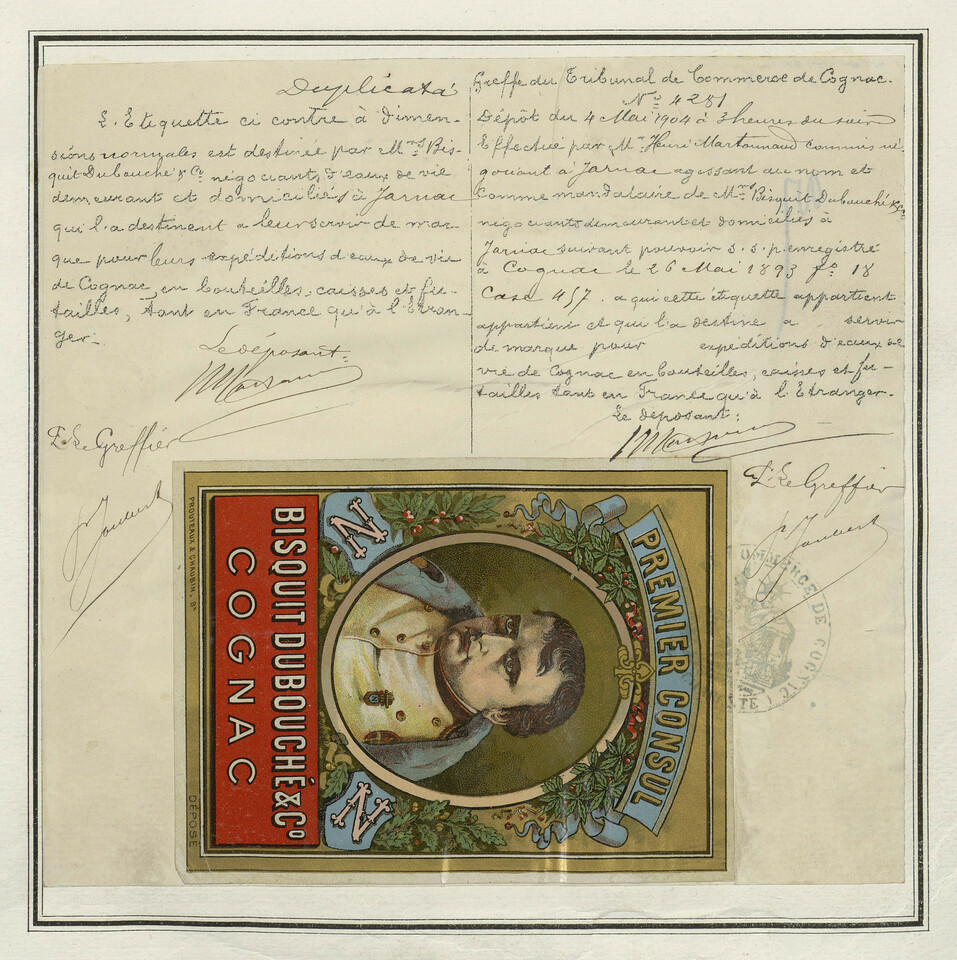 Duplicata
L'Etiquette ci contre à dimen-
sions normales est destinée par Mrs Bis-
quit Dubouché & Co négociants d'eaux de vie
demeurant et domiciliés à Jarnac
qui l'a destinent a leur servir de mar-
que pour leurs expéditions d'eaux de vie
de Cognac, en bouteilles, caisses et fu-
tailles, tant en France qu'à l'Etran-
ger.
Le déposant:
P. Le Greffier
Greffe du Tribunal de Commerce de Cognac.
No 4281
Dépôt du 4 Mai 1904 à 3 heures du soir
Effectué par Mr Henri Martonnaud commis né-
gociant à Jarnac agissant au nom et
comme mandataire de Mrs Bisquit Dubouché & Co
négociants demeurant et domiciliés à
Jarnac suivant pouvoir s.s.p. enregistré
à Cognac le 26 Mai 1893 fo 18
Case 457. a qui cette étiquette appartient
appartient et qui l'a destine a servir
de marque pour expéditions d'eaux de
vie de Cognac en bouteilles, caisses et fu-
tailles tant en France qu'à l'Etranger.
Le deposant:
P. Le Greffier
PREMIER CONSUL
N
N
BISQUIT DUBOUCHÉ & Co
COGNAC
PROUTEAUX & CHAUBIN, Bx
DÉPOSÉ
COMMERCE DE COGNAC